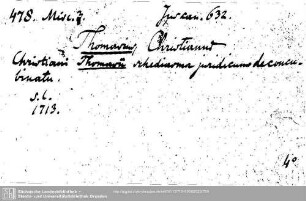 478. Misc. 2. Jus can. 632.
Thomasius, Christianus
Christiani Thomasii schediasma juridicum de concu-
binatu.
s. l.
1713.
4°
Sächsische Landesbibliothek -
Staats- und Universitätsbibliothek Dresden